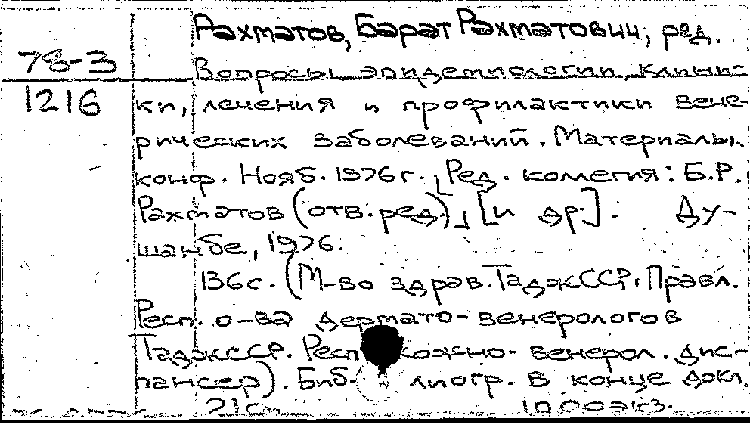 Рахматов, Барат Рахматович, ред.
78-3
1216
Вопросы эпидемиологии, клини-
ки, лечения и профилактики вене-
рических заболеваний. Материалы
конф. Нояб. 1976г. Ред. коллегия: Б.Р.
Рахматов (отв. ред.), [и др.]. Ду-
шанбе, 1976.
136с. (М-во здрав. ТаджССР. Правл.
Респ. о-ва дермато-венерологов
ТаджССР. Респ. кожно-венерол. дис-
пансер). Биб-лиогр. в конце докл.
21см 1000экз.